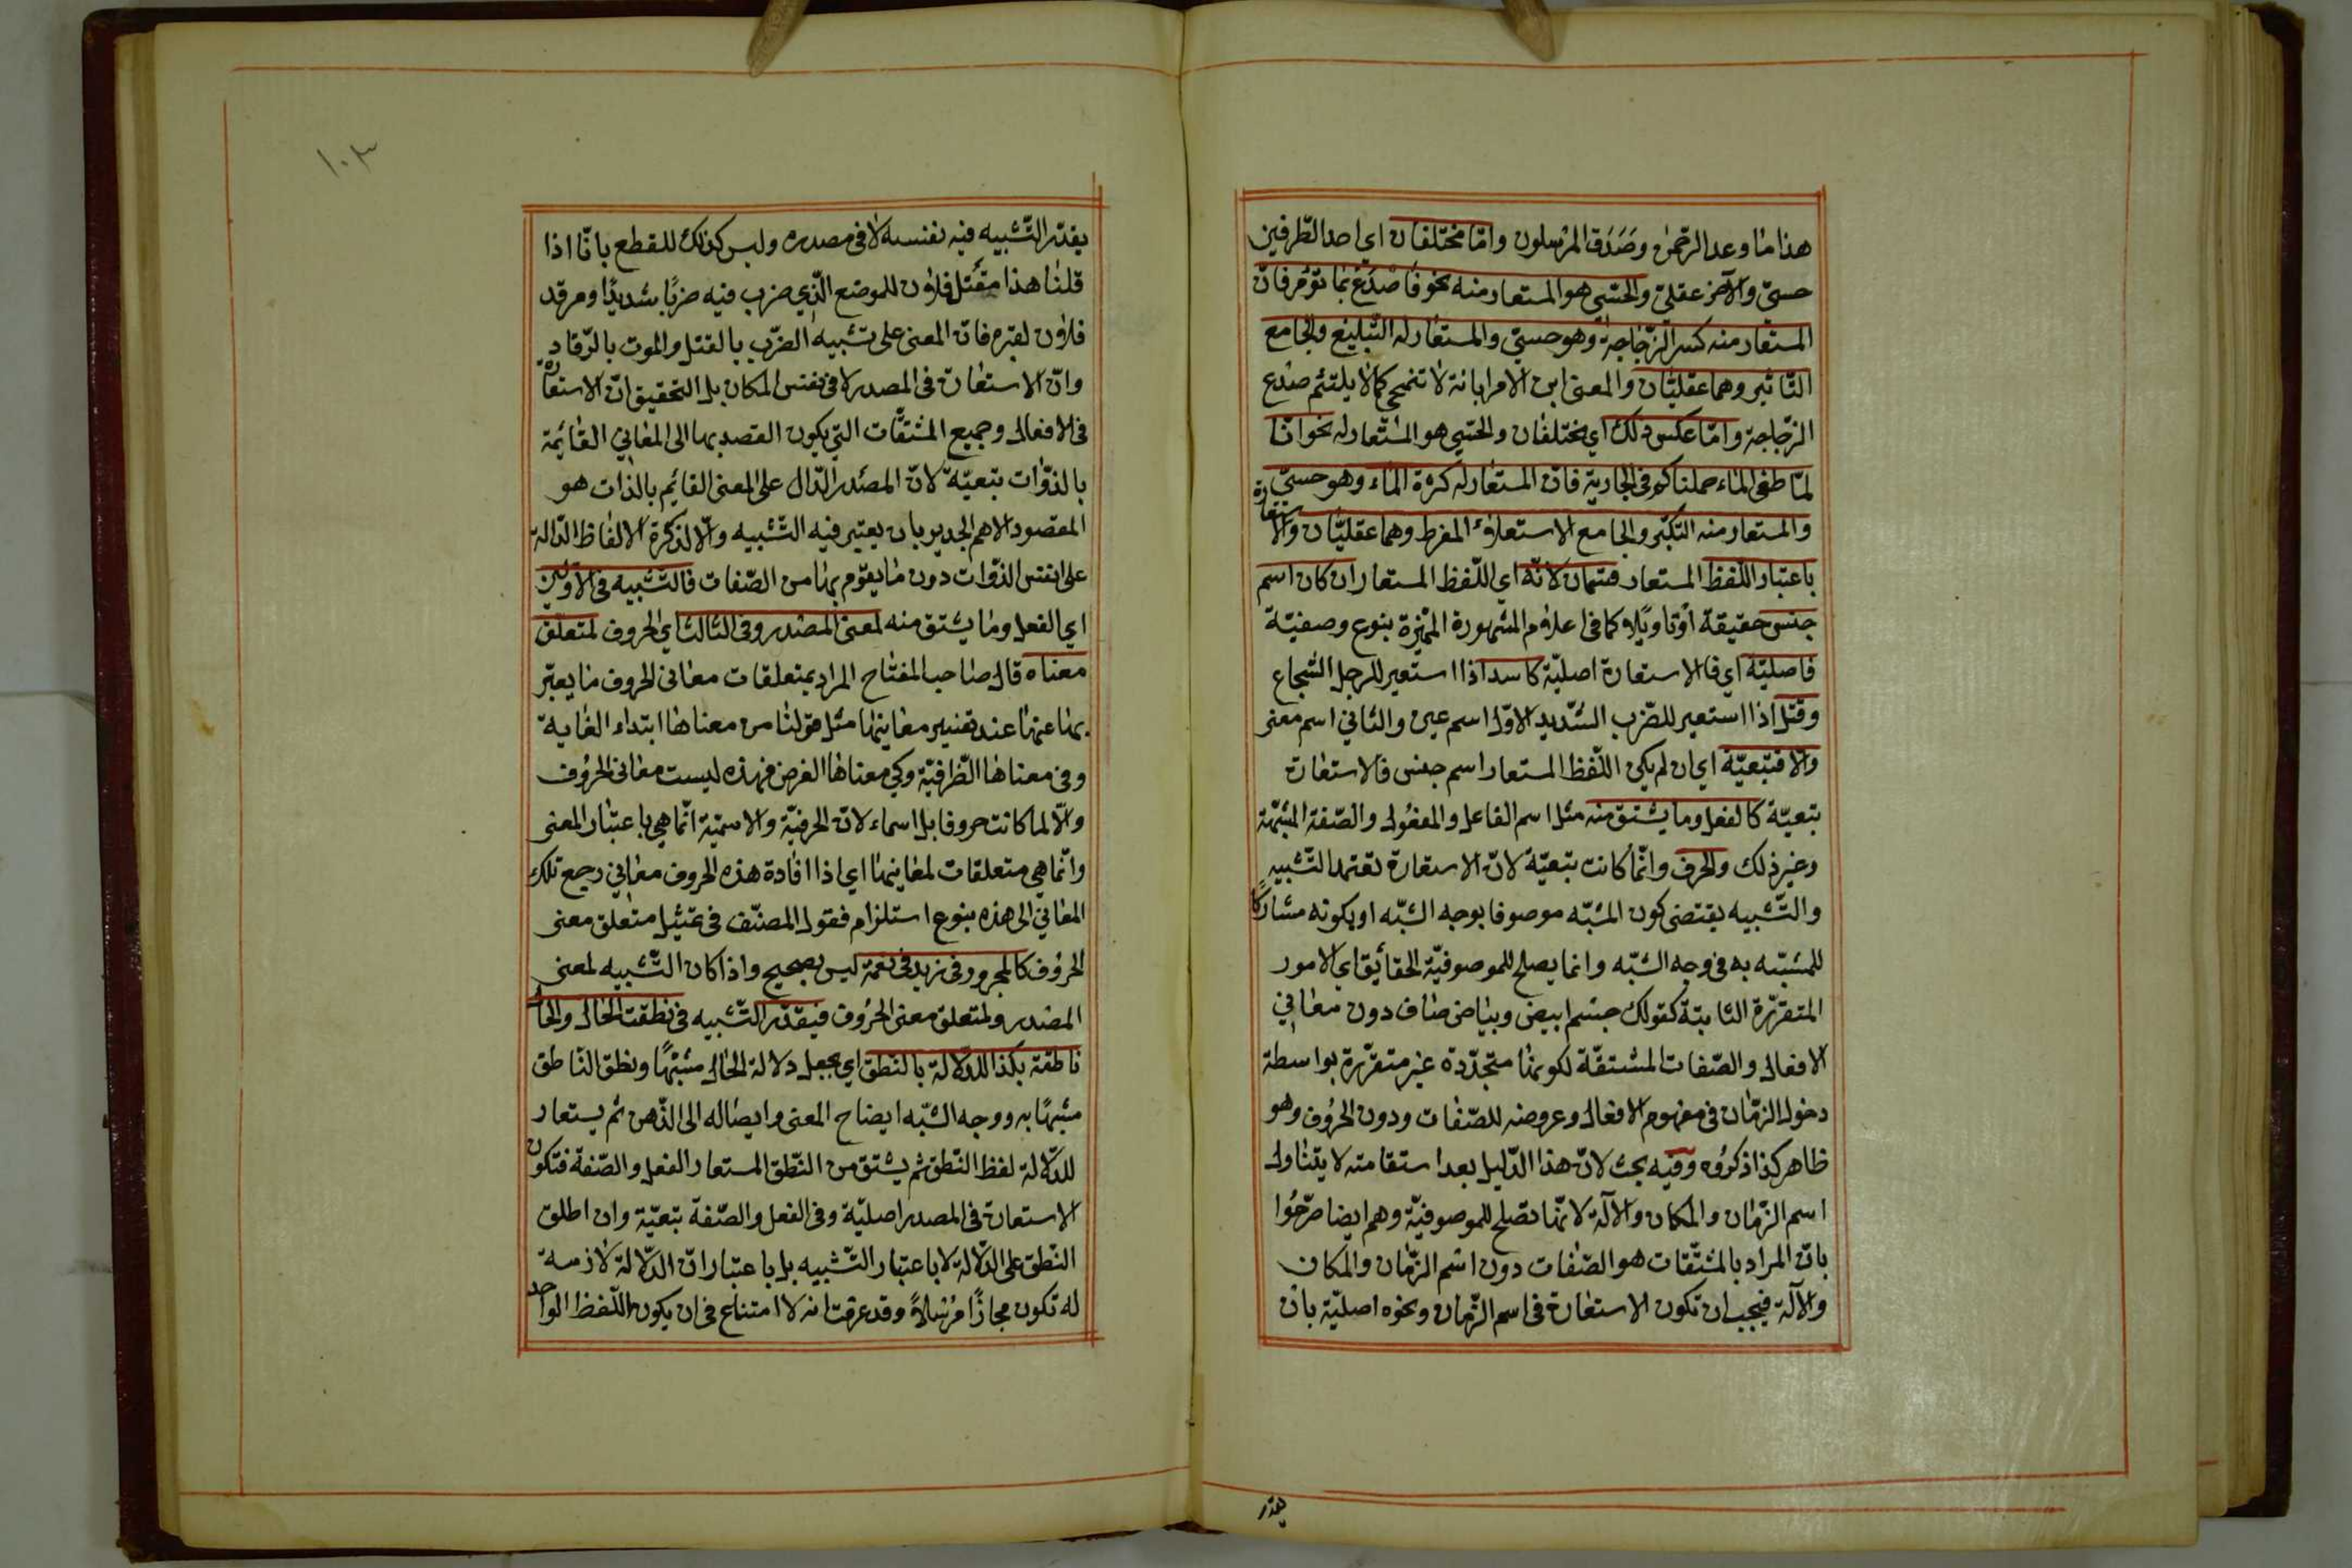 هذا ما وعد الرحمن وصدق المرسلون واما مختلفان اي احد الطرفين
حسي والآخر عقلي والحسي هو المستعار منه نحو فاصدع بما تؤمر فان
المستعار منه كسر الزجاجة وهو حسي والمستعار له التبليغ والجامع
التأثير وهما عقليان والمعنى ابن الامر ابانة لا تنمحي كما لا يلتئم صدع
الزجاجة واما عكس ذلك اي مختلفان والحسي هو المستعار له نحو انا
لما طغى الماء حملناكم في الجارية فان المستعار له كثرة الماء وهو حسي
والمستعار منه التكبر والجامع الاستعلاء المفرط وهما عقليان والاستعارة
باعتبار اللفظ المستعار قسمان لانه اي اللفظ المستعار ان كان اسم
جنس حقيقة او تاويلا كما في اعلام المشهورة المميزة بنوع وصفية
فاصلية اي فالاستعارة اصلية كاسد اذا استعير للرجل الشجاع
وقتل اذا استعير للضرب الشديد الاول اسم عين والثاني اسم معنى
والا فتبعية اي ان لم يكن اللفظ المستعار اسم جنس فالاستعارة
تبعية كالفعل وما يشتق منه مثل اسم الفاعل والمفعول والصفة المشبهة
وغير ذلك والحرف وانما كانت تبعية لان الاستعارة تعتمد التشبيه
والتشبيه يقتضي كون المشبه موصوفا بوجه الشبه او بكونه مشاركا
للمشبه به في وجه الشبه وانما يصلح للموصوفية الحقائق اي الامور
المتقررة الثابتة كقولك جسم ابيض وبياض صاف دون معاني
الافعال والصفات المشتقة لكونها متجددة غير متقررة بواسطة
دخول الزمان في مفهوم الافعال وعروضه للصفات ودون الحروف وهو
ظاهر كذا ذكروه وفيه بحث لان هذا الدليل بعد استقامته لا يتناول
اسم الزمان والمكان والآلة لانها تصلح للموصوفية وهم ايضا صرحوا
بان المراد بالمشتقات هو الصفات دون اسم الزمان والمكان
والآلة فيجب ان تكون الاستعارة في اسم الزمان ونحوه اصلية بان
يقدر
١٠٣
يقدر التشبيه فيه نفسه لا في مصدره وليس كذلك للقطع بانا اذا
قلنا هذا مقتل فلان للموضع الذي ضرب فيه ضربا شديدا ومرقد
فلان لقبره فان المعنى على تشبيه الضرب بالقتل والموت بالرقاد
وان الاستعارة في المصدر لا في نفس المكان بل التحقيق ان الاستعارة
في الافعال وجميع المشتقات التي يكون القصد بها الى المعاني القائمة
بالذوات تبعية لان المصدر الدال على المعنى القائم بالذات هو
المقصود الاهم الجدير بان يعتبر فيه التشبيه والا لذكرة الالفاظ الدالة
على نفس الذوات دون ما يقوم بها من الصفات فالتشبيه في الاولين
اي الفعل وما يشتق منه لمعنى المصدر وفي الثالث اي الحروف لمتعلق
معناه قال صاحب المفتاح المراد بمتعلقات معاني الحروف ما يعبر
بها عنها عند تفسير معانيها مثل قولنا من معناها ابتداء الغاية
وفي معناها الظرفية وكي معناها الغرض فهذه ليست معاني الحروف
والا لما كانت حروفا بل اسماء لان الحرفية والاسمية انما هي باعتبار المعنى
وانما هي متعلقات لمعانيها اي اذا افادة هذه الحروف معاني رجع تلك
المعاني الى هذه بنوع استلزام فقول المصنف في تمثيل متعلق معنى
الحروف كالمجرور في زيد في نعمة ليس بصحيح واذا كان التشبيه لمعنى
المصدر ولمتعلق معنى الحروف فيقدر التشبيه في نطقت الحال والحال
ناطقة بكذا للدلالة بالنطق اي يجعل دلالة الحال مشبها ونطق الناطق
مشبها به ووجه الشبه ايضاح المعنى وايصاله الى الذهن ثم يستعار
للدلالة لفظ النطق ثم يشتق من النطق المستعار الفعل والصفة فتكون
الاستعارة في المصدر اصلية وفي الفعل والصفة تبعية وان اطلق
النطق على الدلالة لا باعتبار التشبيه بل باعتبار ان الدلالة لازمة
له تكون مجازا مرسلا وقد عرفت انه لا امتناع في ان يكون اللفظ الواحد